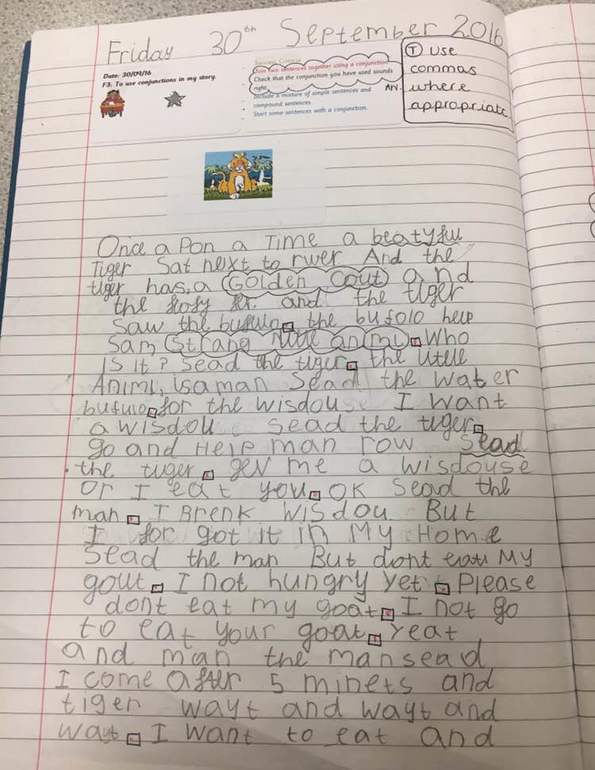 Friday 30th September 2016
Date: 30/09/16
F3: To use conjunctions in my story.
Join two sentences together using a conjunction
Check that the conjunction you have used sounds
right.
Include a mixture of simple sentences and
compound sentences.
Start some sentences with a conjunction.
T use
commas
where
appropriate
Once a Pon a Time a beatyful
Tiger Sat next to rwer And the
tiger has a Golden Cout and
the and the tiger
Saw the bufulo the bufolo help
Sam Strang animl Who
is it? Sead the tiger the little
Animl isaman Sead the water
bufulo for the wisdouse I want
a wisdou sead the tiger
go and Help man row Sead
the tiger me a wisdouse
or I eat you OK Sead the
man I Brenk wisdou But
I for got it in My Home
Sead the man But dont eat My
gout I not hungry yet Please
dont eat my goat I not go
to eat your goat yeat
and man the mansead
I come after 5 minets and
tiger wayt and wayt and
wayt I want to eat and